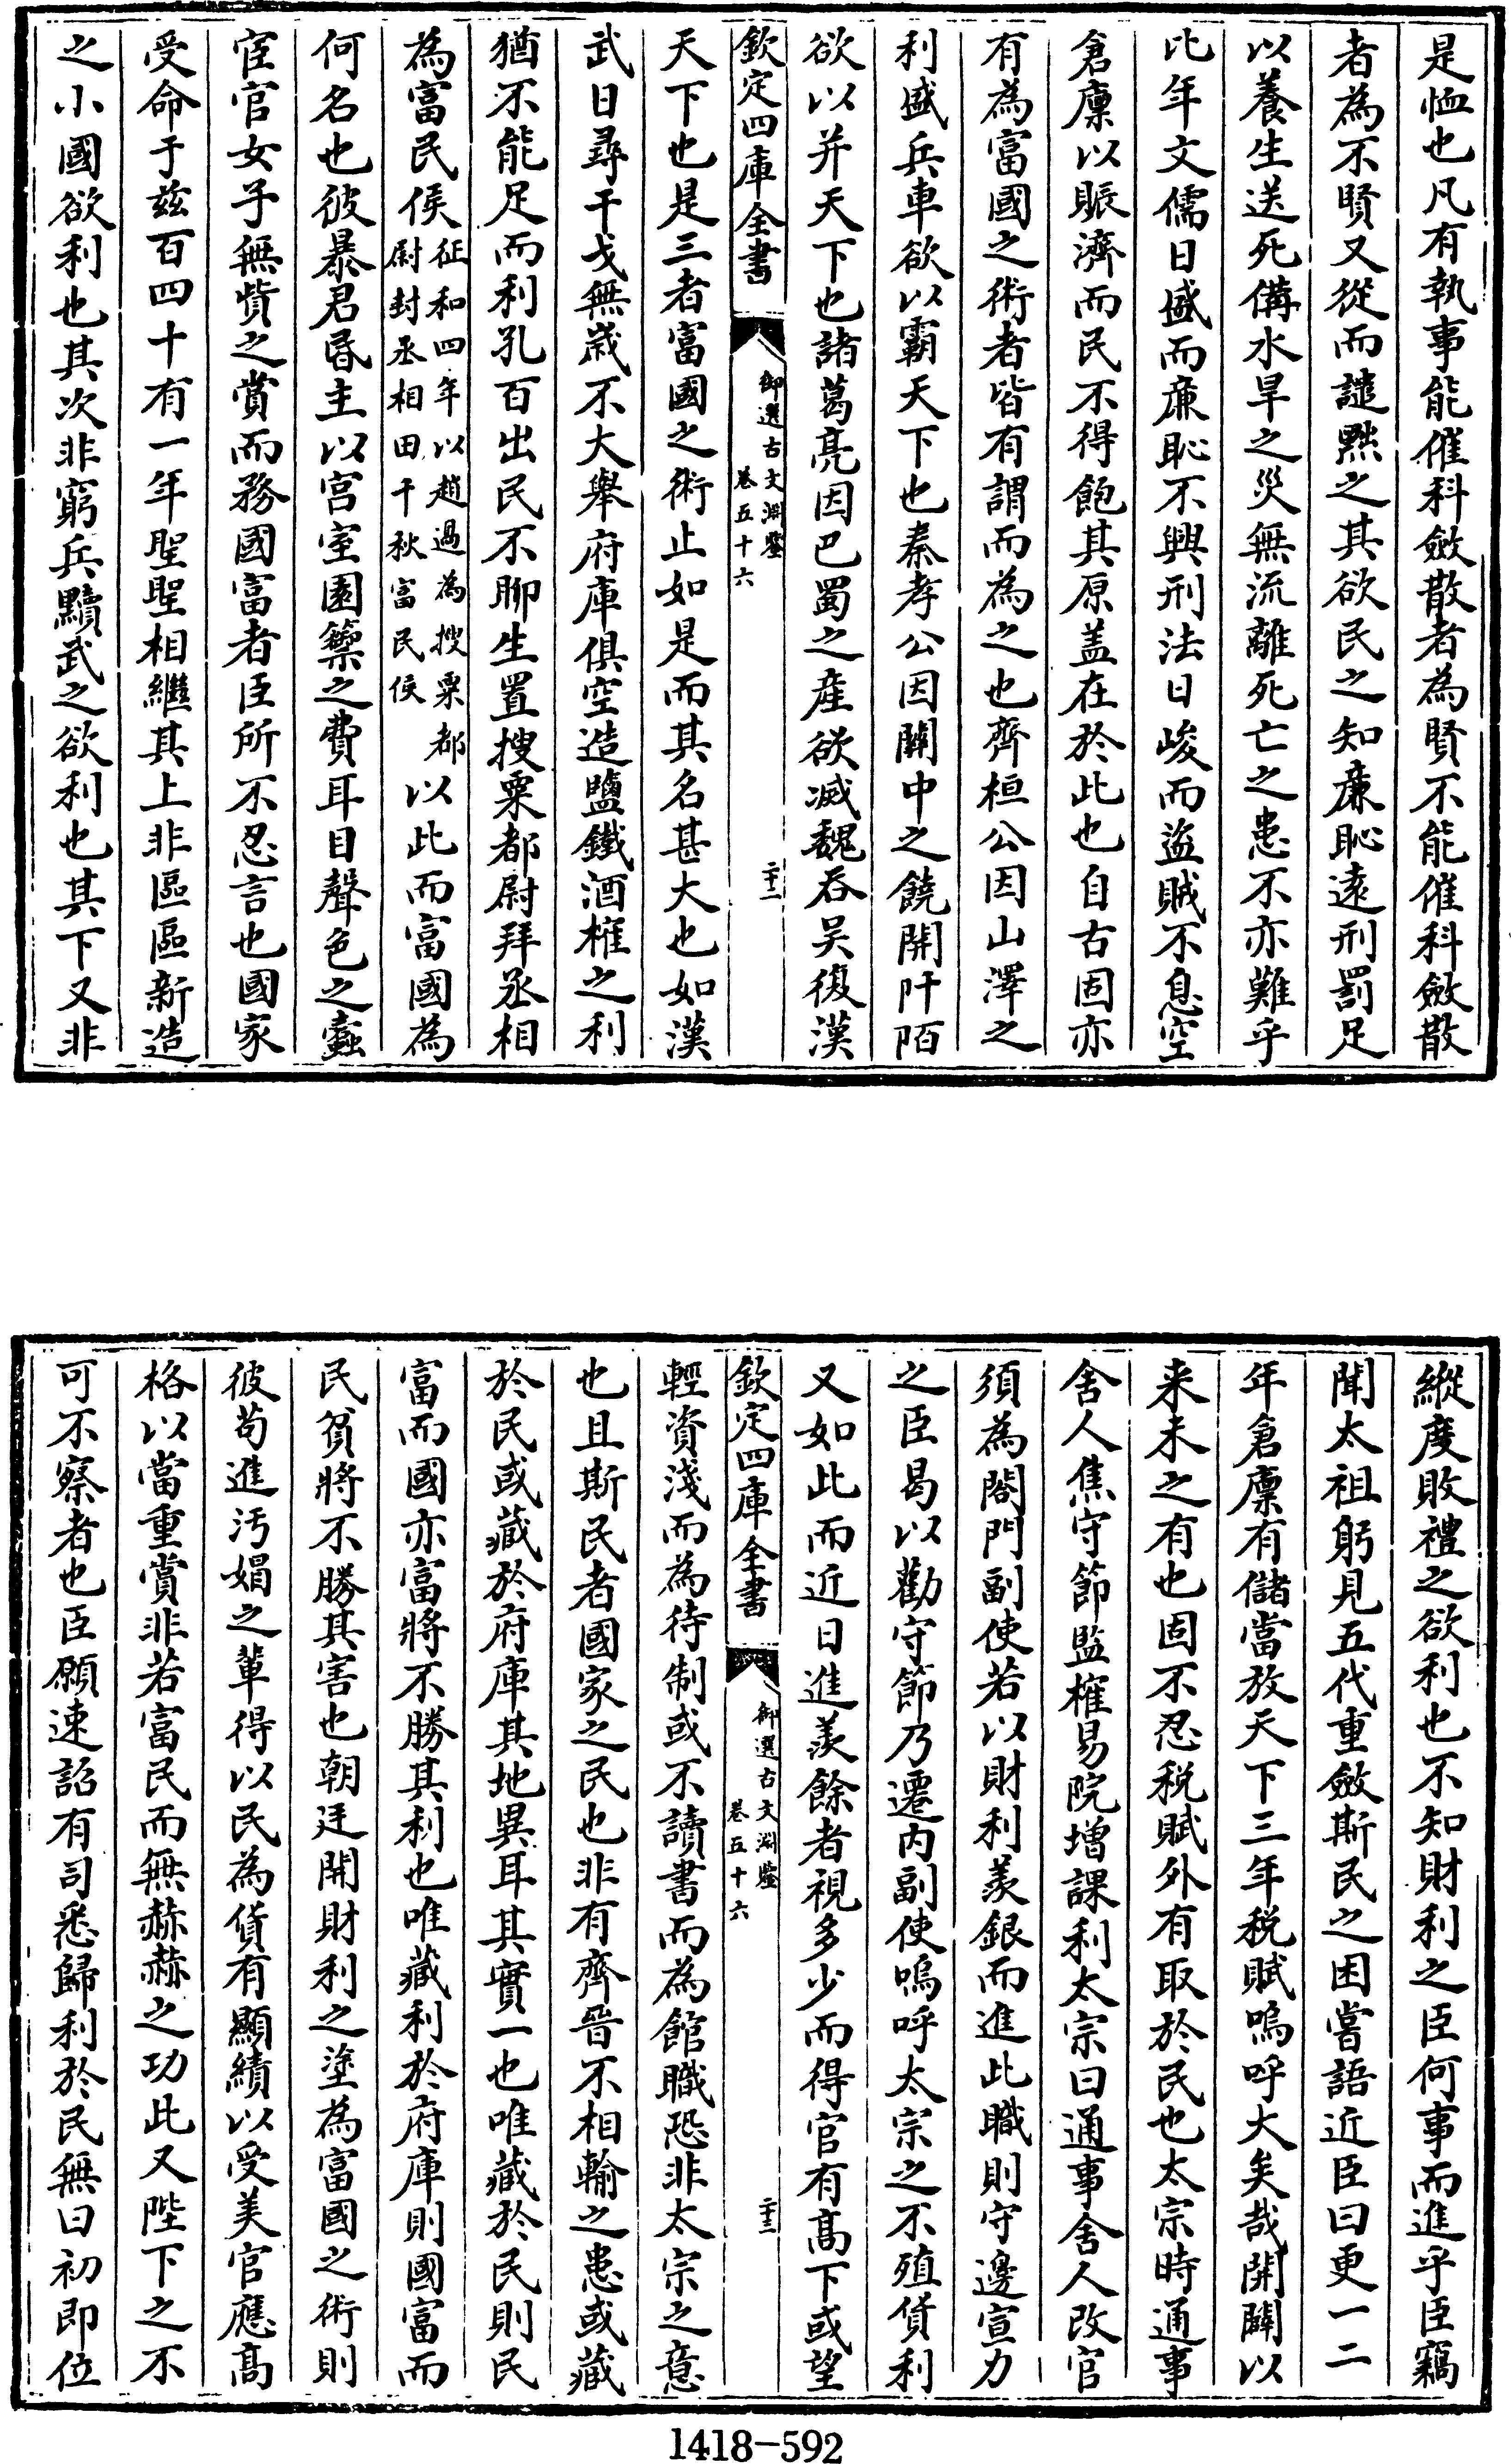 是恤也凡有執事能催科斂散者為賢不能催科斂散
者為不賢又從而譴黜之其欲民之知亷恥逺刑罰足
以養生送死備水旱之災無流離死亡之患不亦難乎
比年文儒日盛而亷恥不興刑法日峻而盜賊不息空
倉廩以賑濟而民不得飽其原盖在於此也自古固亦
有為富國之術者皆有謂而為之也齊桓公因山澤之
利盛兵車欲以霸天下也秦孝公因關中之饒開阡陌
欲以并天下也諸葛亮因巴蜀之産欲滅魏吞吴復漢
欽定四庫全書 御選古文淵鑒 卷五十六 二十二
天下也是三者富國之術止如是而其名甚大也如漢
武日尋干戈無嵗不大舉府庫俱空造鹽鐵酒榷之利
猶不能足而利孔百出民不聊生置搜粟都尉拜丞相
為富民侯征和四年以趙過為搜粟都尉封丞相田千秋富民侯以此而富國為
何名也彼暴君昬主以宫室園籞之費耳目聲色之蠧
宦官女子無貲之賞而務國富者臣所不忍言也國家
受命于兹百四十有一年聖聖相繼其上非區區新造
之小國欲利也其次非窮兵黷武之欲利也其下又非
縱度敗禮之欲利也不知財利之臣何事而進乎臣竊
聞太祖躬見五代重斂斯民之困嘗語近臣曰更一二
年倉廩有儲當放天下三年税賦嗚呼大矣哉開闢以
来未之有也固不忍税賦外有取於民也太宗時通事
舍人焦守節監榷易院增課利太宗曰通事舍人改官
須為閤門副使若以財利羡銀而進此職則守邊宣力
之臣曷以勸守節乃遷内副使嗚呼太宗之不殖貨利
又如此而近日進羡餘者視多少而得官有髙下或望
欽定四庫全書 御選古文淵鑒 卷五十六 二十三
輕資淺而為待制或不讀書而為館職恐非太宗之意
也且斯民者國家之民也非有齊晉不相輸之患或藏
於民或藏於府庫其地異耳其實一也唯藏於民則民
富而國亦富將不勝其利也唯藏利於府庫則國富而
民貧將不勝其害也朝廷開財利之塗為富國之術則
彼苟進汚娼之輩得以民為貨有顯績以受美官應髙
格以當重賞非若富民而無赫赫之功此又陛下之不
可不察者也臣願速詔有司悉歸利於民無曰初即位
1418-592